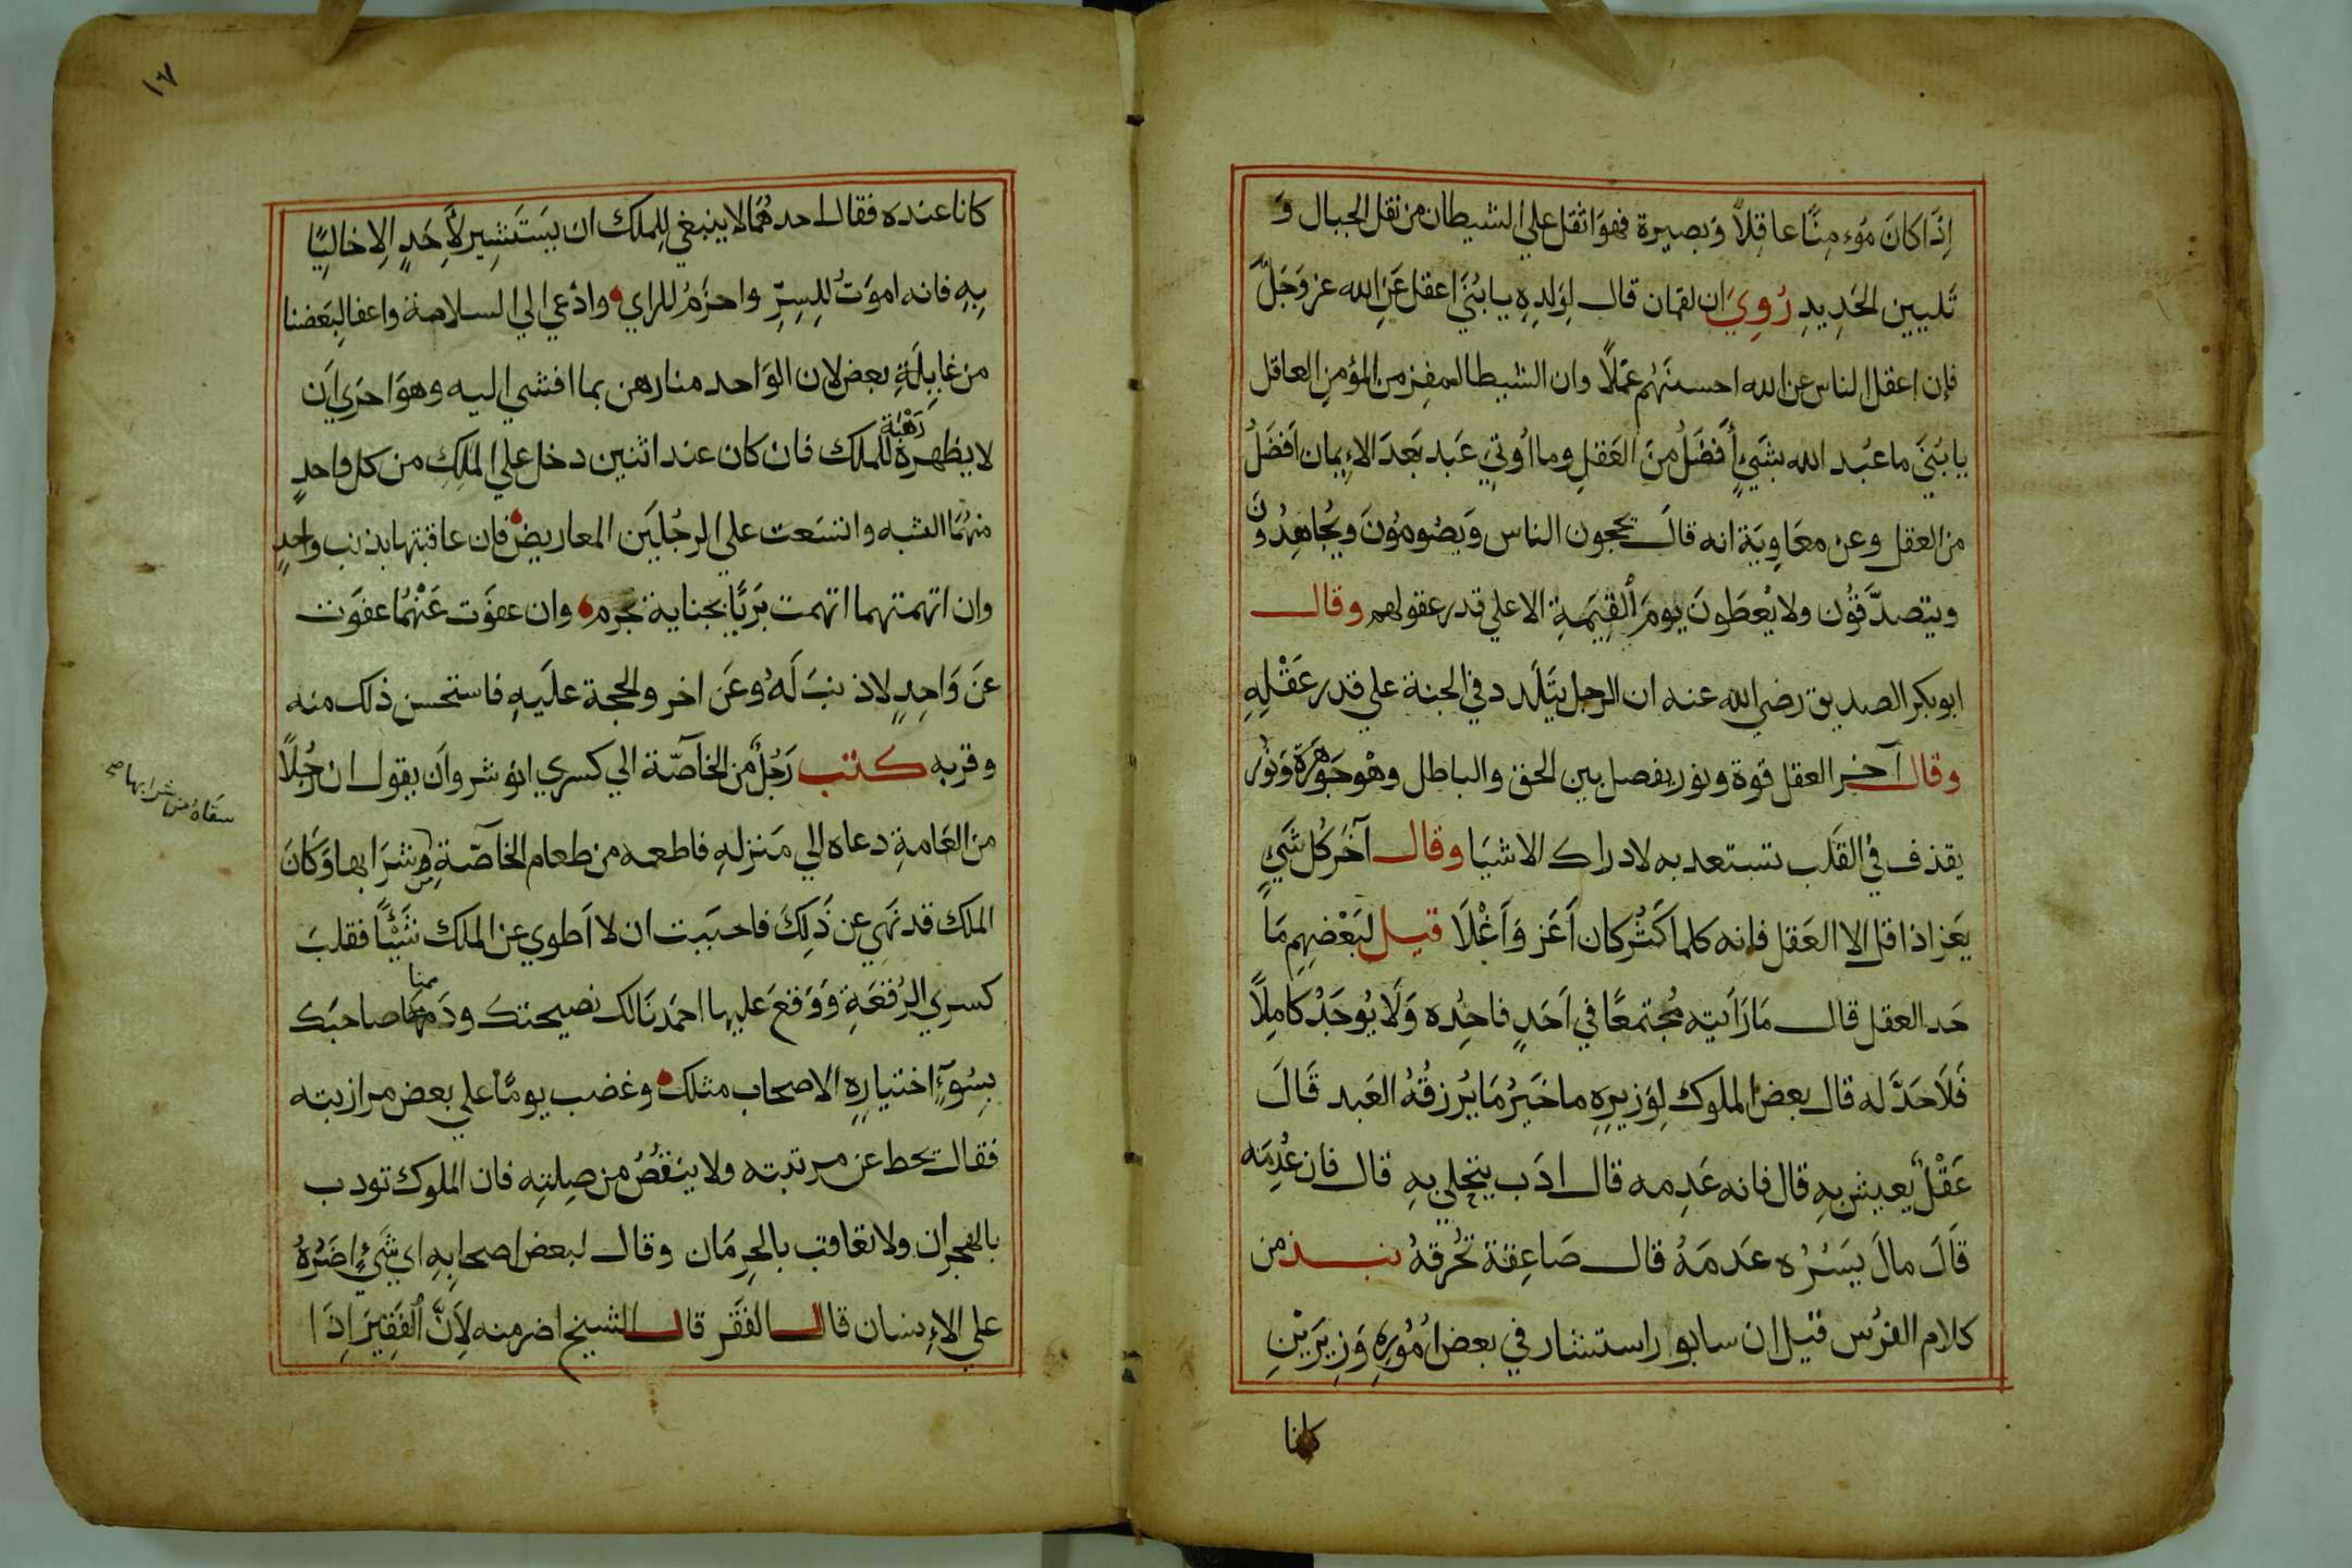 اِذَا كانَ مُوءمِنًا عاقِلاً وَبصيرة فهوَ اثقل علي الشيطان من نقل الجبال وَ
تَليين الحَدِيدِ رُوِيَ ان لقمان قال لِوَلدِهِ يا بُنَيَ اعقل عَنِ الله عز وَجَلَّ
فإن اعقل الناس عن الله احسنهُم عَمَلًا وان الشيطا ليفِز من المؤمنِ العاقل
يا بُنَيَ ما عُبد الله بشَيءٍ أَفضَلُ منَ العَقلِ وما اُوتِيَ عَبد بَعدَ الاِيمان اَفضَلُ
من العقل وعن معَاوِيَة انه قالَ يحجون الناس وَيصُومُونَ ويُجاهِدُونَ
ويتصدَّقُون ولا يُعطَونَ يومَ القِيٰمَةِ الا علي قدر عقولهم وقال
ابو بكر الصديق رضي الله عنه ان الرجل يتَلَدد في الجنة علي قدر عَقْلِهِ
وقال آخر العقل قوة ونور يفصل بين الحق والباطل وهو جَوهَرَة وَنُور
يقذف في القَلب تستعد به لادراك الاشيَا وقال آخَر كُل شَيءٍ
يَعَز اذا قل الا العَقل فإنه كلما كَثُر كان اَعَز وَاَغْلَا قيل لبَعْضِهِم مَا
حَد العقل قال مَا رَاَيته مُجتمعًا في اَحَدٍ فاحُده وَلَا يُوجَدُ كامِلًا
فَلَا حَدَّ له قال بعض الملوك لِوَزيرِه ما خَيرُ مَا يُرزقُهُ العَبد قَالَ
عَقْلٌ يعيش بِهِ قال فانه عَدِمه قال ادَب يتحلي بِهِ قال فان عُدِمَه
قَالَ مالَ يَسْتُرُه عَدمَهُ قال صَاعِقة تُحْرِقهُ نبذ من
كلام الفُرس قيل ان سابور استشار في بعض اُمُورِهِ وَزِيرَيْنِ
كانا
١٧
كانا عنده فقال احدهُمَا لا ينبغي لِلملك ان يَستَشِير لأحَدٍ اِلا خاليًا
بِهِ فانه اموَتُ لِلسِرِّ واحزَمُ للراي وادْعي الي السلامة واعفا لِبَعضنا
من غايِلَةِ بعض لان الوَاحد منا رهن بما افشي اليه وهوَ احرَي اَن
لا يظهره رَهْبَة للملك فان كان عند اثنين دخل علي الملِكِ من كل واحدٍ
منهُمَا الشبه واتسَعت علي الرجُلَين المعاريض فان عاقبتها بذنب واحدٍ
وان اتهمتهما اتهمت بَرِيًا بجناية مجرم وان عفوَت عَنْهُمَا عفَوَت
عَن وَاحِدٍ لا ذنبَ لَهُ وعَن اخر والحجة علَيهِ فاستحسن ذلك منه
وقربه كتب رَجُلٌ من الخاصّة الي كسري انوشروان يقول ان رَجُلًا
من العَامةِ دعاه الي مَنزلهِ فاطعمه من طعام الخاصّة من شرَابها وَكانَ
سقاهُ من شرابها صح
الملك قد نهَي عن ذَلِكَ فاحبَبت ان لا اَطوي عن الملك شَيْئًا فقلبَ
كسرِي الرُقعَةِ وَوَقعَ عليها احمَدنَا لك نصيحتك وذممنا صاحبَك
بِسُوءِ اختيارِهِ الاصحاب مثلك وغضب يومًا علي بعض مرازبته
فقال يحط عن مرتبته ولا ينقُصُ من صِلتِه فان الملوك تودب
بالهجران ولا تعاقب بالحِرمَان وقال لبعض اصحابِهِ اي شَيءٍ اضرُهُ
علي الاِنسان قال الفَقر قال الشيخ اضر منه لِأَنَّ الفَقِيرَ اِذَا